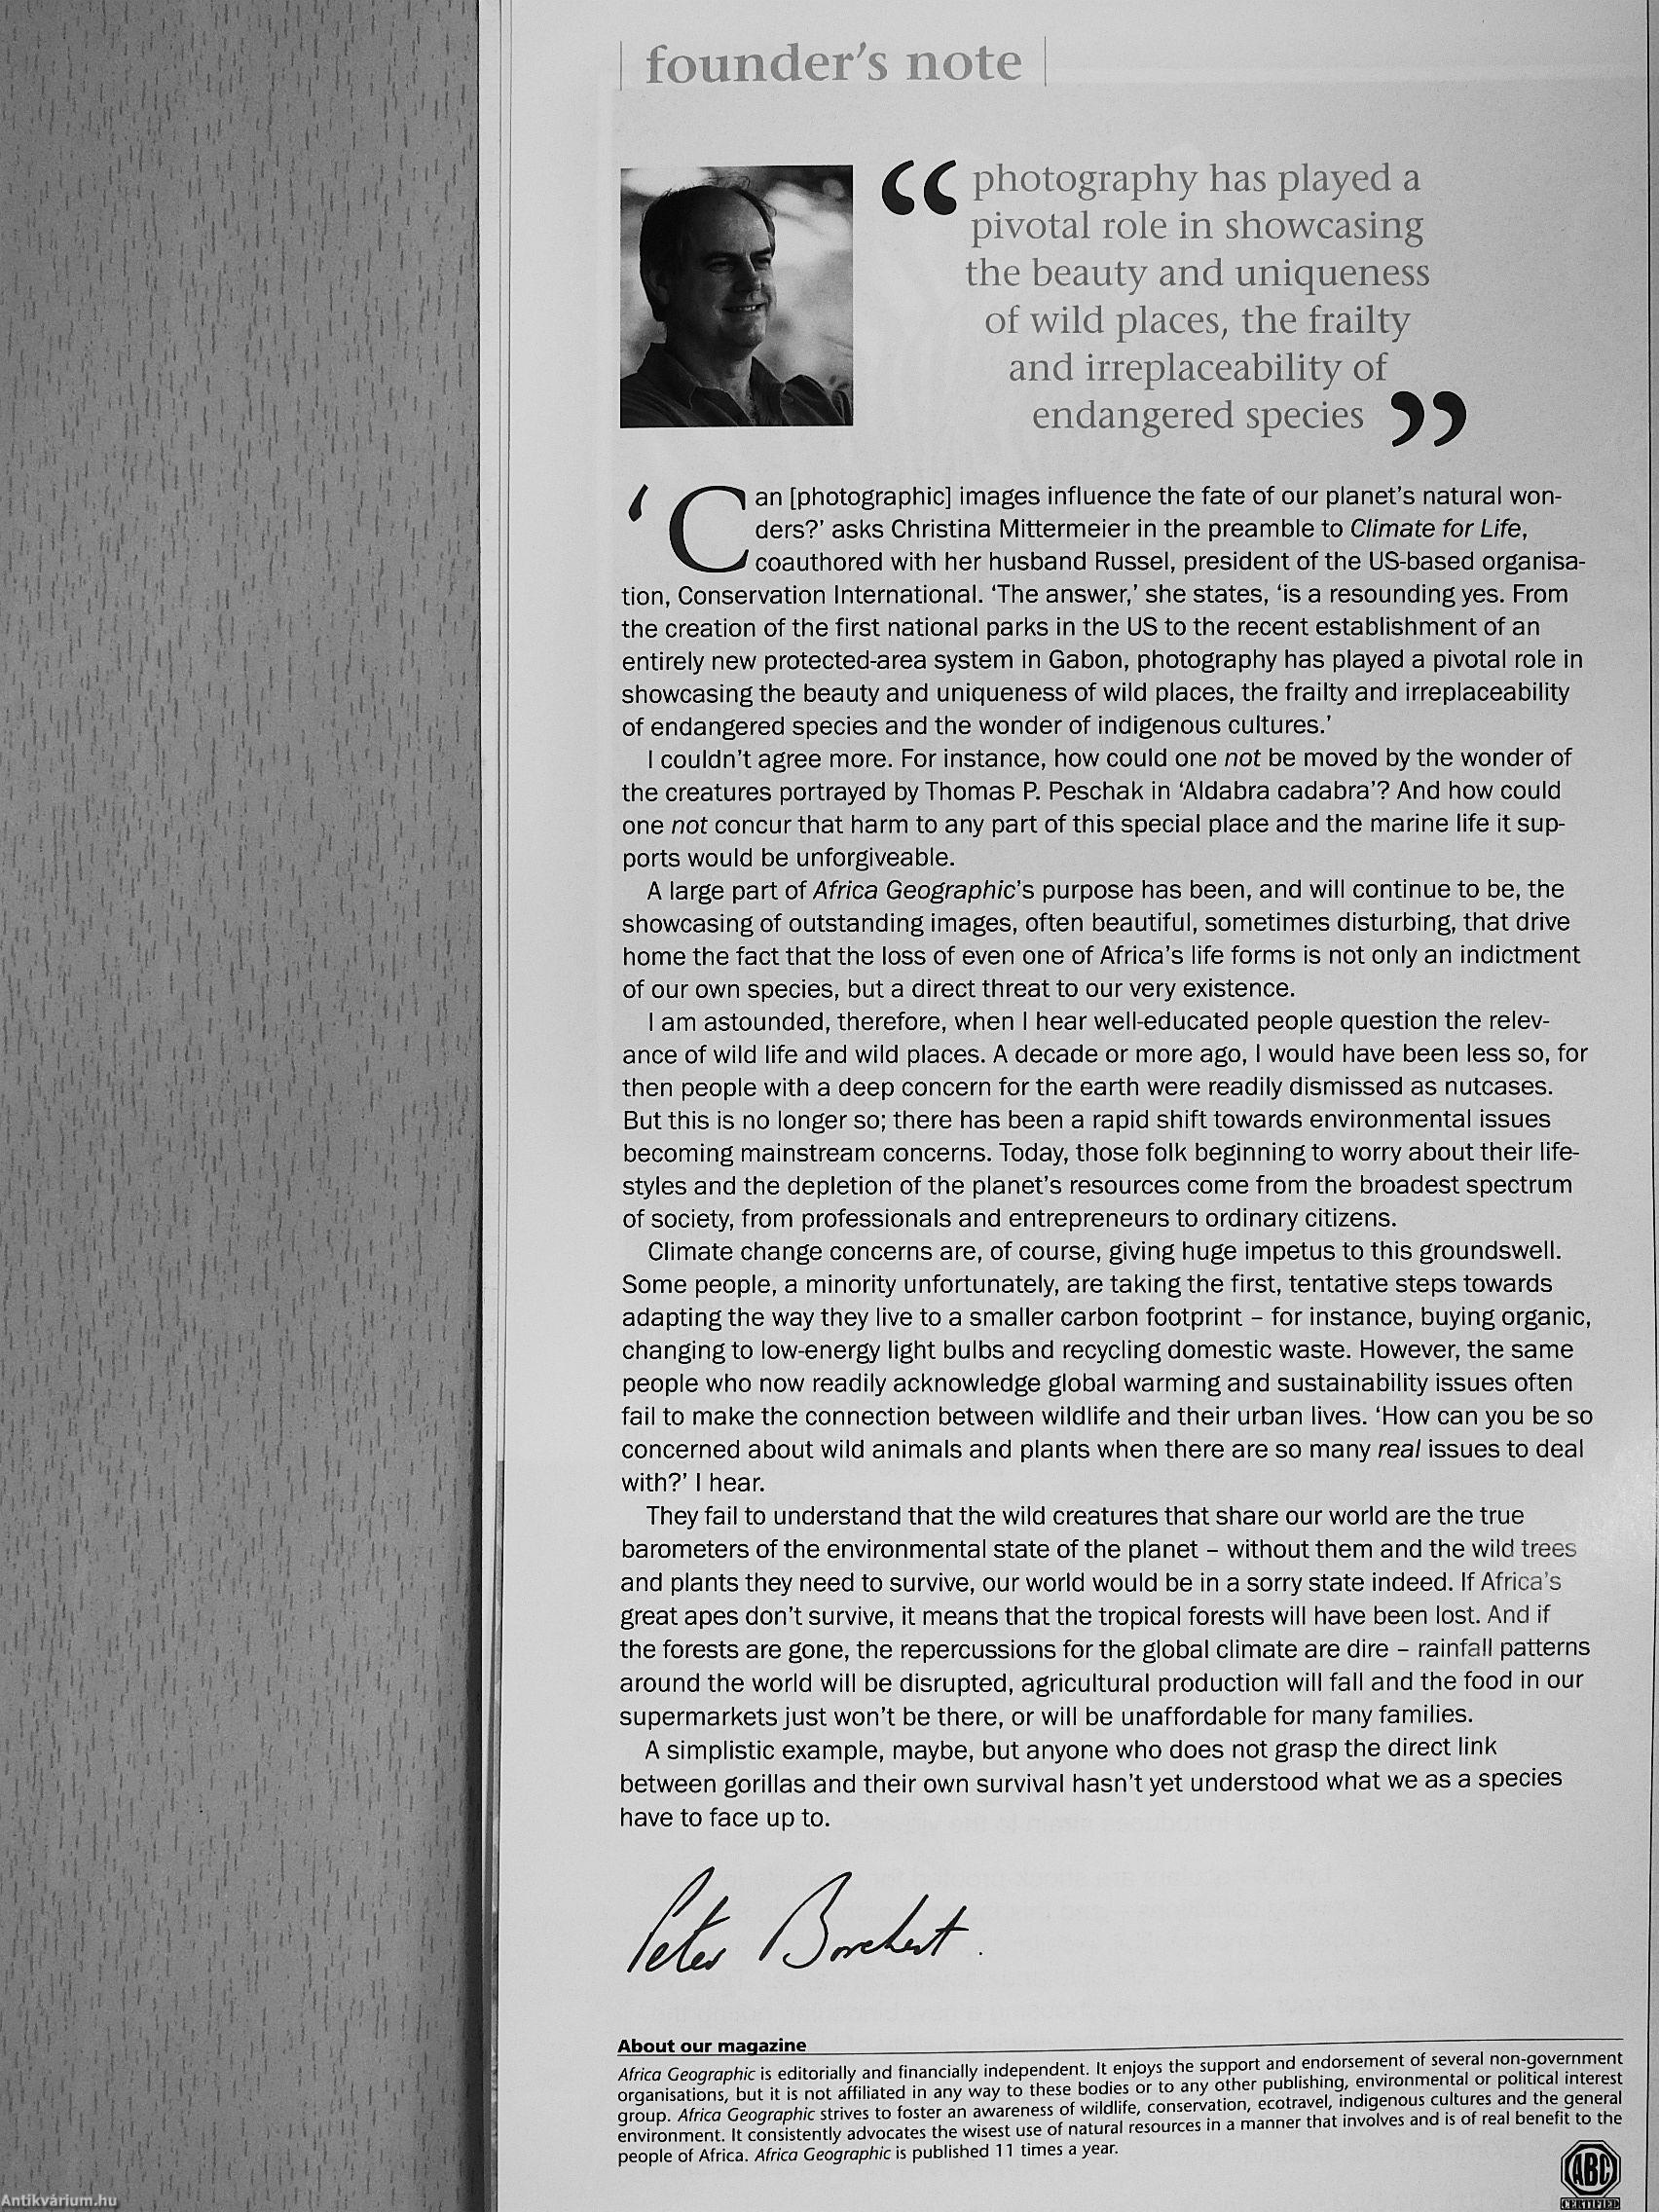 founder's note
“ photography has played a
pivotal role in showcasing
the beauty and uniqueness
of wild places, the frailty
and irreplaceability of
endangered species ”
‘Can [photographic] images influence the fate of our planet’s natural won-
ders?’ asks Christina Mittermeier in the preamble to Climate for Life,
coauthored with her husband Russel, president of the US-based organisa-
tion, Conservation International. ‘The answer,’ she states, ‘is a resounding yes. From
the creation of the first national parks in the US to the recent establishment of an
entirely new protected-area system in Gabon, photography has played a pivotal role in
showcasing the beauty and uniqueness of wild places, the frailty and irreplaceability
of endangered species and the wonder of indigenous cultures.’
I couldn’t agree more. For instance, how could one not be moved by the wonder of
the creatures portrayed by Thomas P. Peschak in ‘Aldabra cadabra’? And how could
one not concur that harm to any part of this special place and the marine life it sup-
ports would be unforgiveable.
A large part of Africa Geographic’s purpose has been, and will continue to be, the
showcasing of outstanding images, often beautiful, sometimes disturbing, that drive
home the fact that the loss of even one of Africa’s life forms is not only an indictment
of our own species, but a direct threat to our very existence.
I am astounded, therefore, when I hear well-educated people question the relev-
ance of wild life and wild places. A decade or more ago, I would have been less so, for
then people with a deep concern for the earth were readily dismissed as nutcases.
But this is no longer so; there has been a rapid shift towards environmental issues
becoming mainstream concerns. Today, those folk beginning to worry about their life-
styles and the depletion of the planet’s resources come from the broadest spectrum
of society, from professionals and entrepreneurs to ordinary citizens.
Climate change concerns are, of course, giving huge impetus to this groundswell.
Some people, a minority unfortunately, are taking the first, tentative steps towards
adapting the way they live to a smaller carbon footprint – for instance, buying organic,
changing to low-energy light bulbs and recycling domestic waste. However, the same
people who now readily acknowledge global warming and sustainability issues often
fail to make the connection between wildlife and their urban lives. ‘How can you be so
concerned about wild animals and plants when there are so many real issues to deal
with?’ I hear.
They fail to understand that the wild creatures that share our world are the true
barometers of the environmental state of the planet – without them and the wild trees
and plants they need to survive, our world would be in a sorry state indeed. If Africa’s
great apes don’t survive, it means that the tropical forests will have been lost. And if
the forests are gone, the repercussions for the global climate are dire – rainfall patterns
around the world will be disrupted, agricultural production will fall and the food in our
supermarkets just won’t be there, or will be unaffordable for many families.
A simplistic example, maybe, but anyone who does not grasp the direct link
between gorillas and their own survival hasn’t yet understood what we as a species
have to face up to.
Peter Borchert.
About our magazine
Africa Geographic is editorially and financially independent. It enjoys the support and endorsement of several non-government
organisations, but it is not affiliated in any way to these bodies or to any other publishing, environmental or political interest
group. Africa Geographic strives to foster an awareness of wildlife, conservation, ecotravel, indigenous cultures and the general
environment. It consistently advocates the wisest use of natural resources in a manner that involves and is of real benefit to the
people of Africa. Africa Geographic is published 11 times a year.
ABC
CERTIFIED
Antikvárium.hu